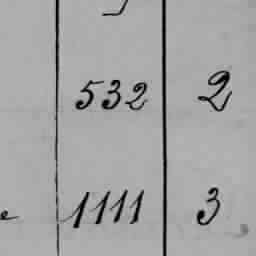 532 2
e 1111 3